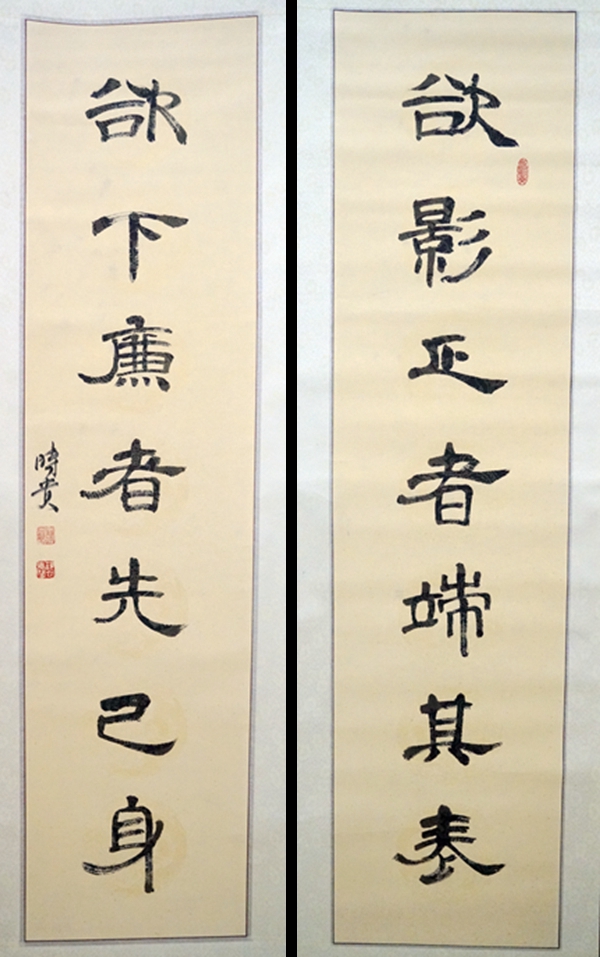 欲影正者端其表
欲下廉者先己身
時貴